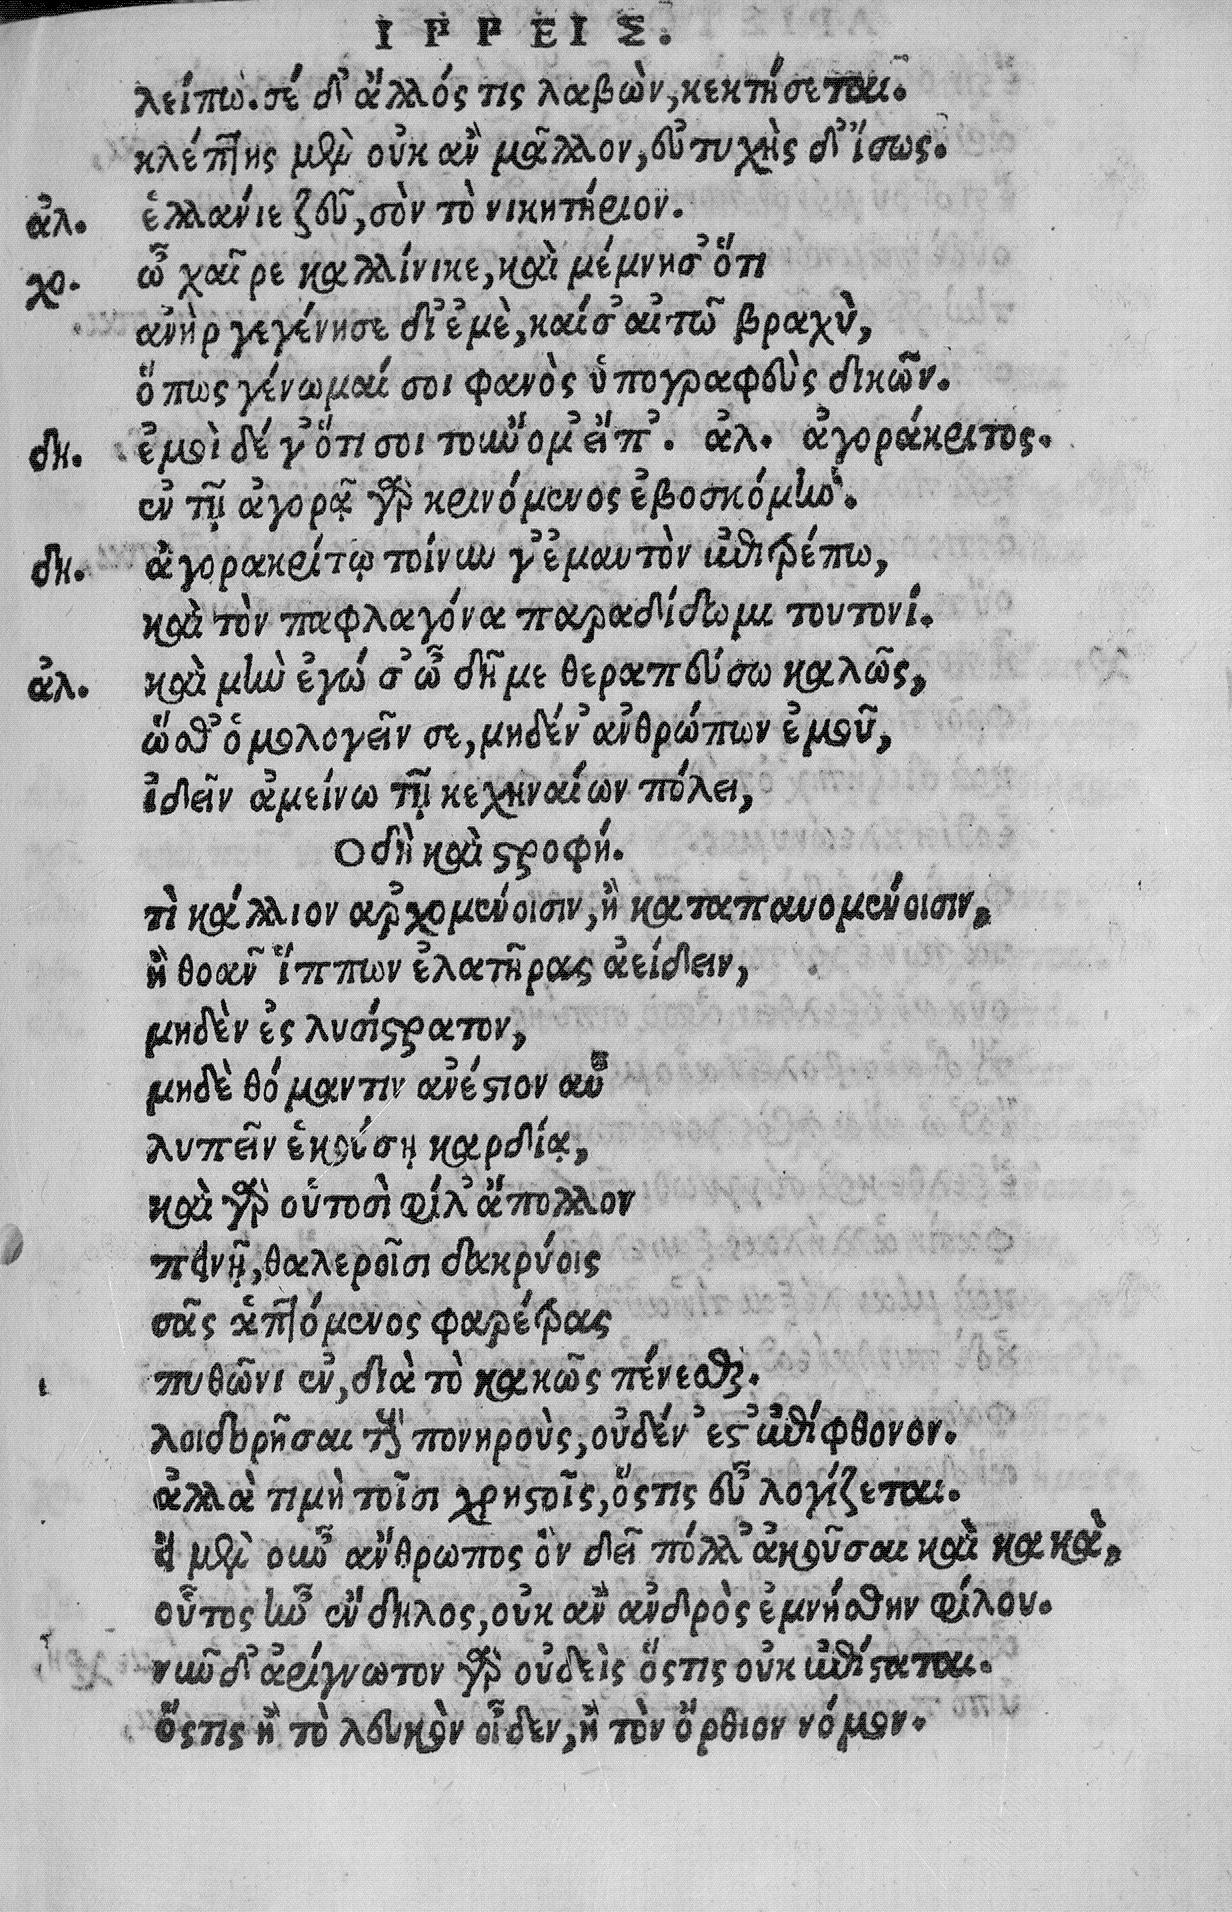 ΙΡΡΕΙΣ.
λείπω. σέ δ' ἄλλός τις λαβὼν, κεκτήσεται.
κλέπτης μὲν οὐκ ἂν μᾶλλον, εὐτυχὴς δ' ἴσως.
ἀλ. ἑλλανιε ζεῦ, σὸν τὸ νικητήριον.
χο. ὦ χαῖρε καλλίνικε, καὶ μέμνησ' ὅτι
ἀνὴρ γεγένησε δι' ἐμὲ, καί σ' αἰτῶ βραχὺ,
ὅπως γένωμαί σοι φανὸς ὑπογραφεὺς δικῶν.
δη. ἐμοὶ δέ γ' ὅτι σοι τοὔνομ' εἴπ'. ἀλ. ἀγοράκριτος.
ἐν τῇ ἀγορᾷ γὰρ κρινόμενος ἐβοσκόμην.
δη. ἀγορακρίτῳ τοίνυν γ' ἐμαυτὸν ἐπιτρέπω,
καὶ τὸν παφλαγόνα παραδίδωμι τουτονί.
ἀλ. καὶ μὴν ἐγώ σ' ὦ δῆμε θεραπεύσω καλῶς,
ὥσθ' ὁμολογεῖν σε, μηδέν' ἀνθρώπων ἐμοῦ,
ἰδεῖν ἀμείνω τῇ κεχηναίων πόλει,
Οδὴ καὶ στροφή.
τὶ κάλλιον ἀρχομένοισιν, ἢ καταπαυομένοισιν,
ἢ θοαν ἵππων ἐλατῆρας ἀείδειν,
μηδὲν ἐς λυσίστρατον,
μηδὲ θόμαντιν ἀνέστιον αὖ
λυπεῖν ἑκούσῃ καρδίᾳ,
καὶ γὰρ οὑτοσὶ φίλ' ἄπολλον
πεινῇ, θαλεροῖσι δακρύοις
σᾶς ἁπτόμενος φαρέτρας
πυθῶνι ἐν, διὰ τὸ κακῶς πένεσθαι.
λοιδορῆσαι τοὺς πονηροὺς, οὐδέν ἐστ' ἐπίφθονον.
ἀλλὰ τιμὴ τοῖσι χρηστοῖς, ὅστις εὖ λογίζεται.
εἰ μὲν οὖν ἄνθρωπος ὃν δεῖ πόλλ' ἀκοῦσαι καὶ κακὰ,
οὗτος ἦν ἔνδηλος, οὐκ ἂν ἀνδρὸς ἐμνήσθην φίλου.
νῦν δ' ἀρίγνωτον γὰρ οὐδεὶς ὅστις οὐκ ἐπίσταται.
ὅστις ἢ τὸ λευκὸν οἶδεν, ἢ τὸν ὄρθιον νόμον.